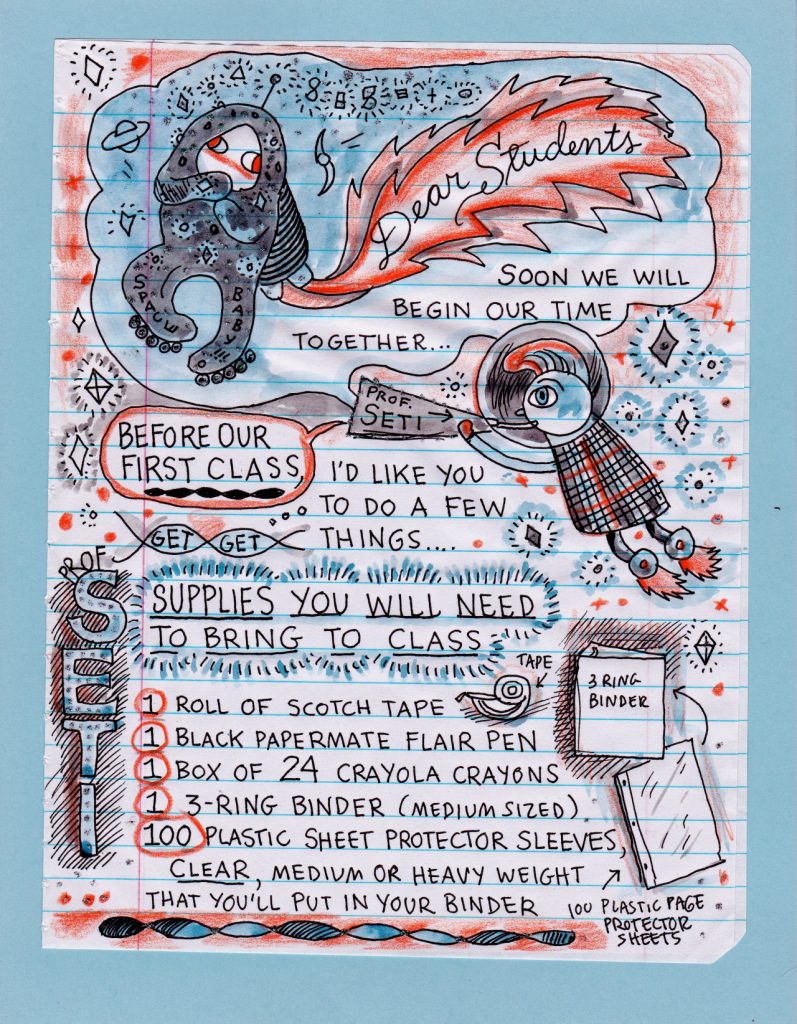 Dear Students
SPACE
BABY
SOON WE WILL
BEGIN OUR TIME
TOGETHER...
PROF.
SETI
BEFORE OUR
FIRST CLASS,
I'D LIKE YOU
TO DO A FEW
THINGS....
GET GET
PROF
SETI
SUPPLIES YOU WILL NEED
TO BRING TO CLASS
TAPE
1 ROLL OF SCOTCH TAPE
1 BLACK PAPERMATE FLAIR PEN
1 BOX OF 24 CRAYOLA CRAYONS
1 3-RING BINDER (MEDIUM SIZED)
100 PLASTIC SHEET PROTECTOR SLEEVES,
CLEAR, MEDIUM OR HEAVY WEIGHT
THAT YOU'LL PUT IN YOUR BINDER
3 RING
BINDER
100 PLASTIC PAGE
PROTECTOR
SHEETS